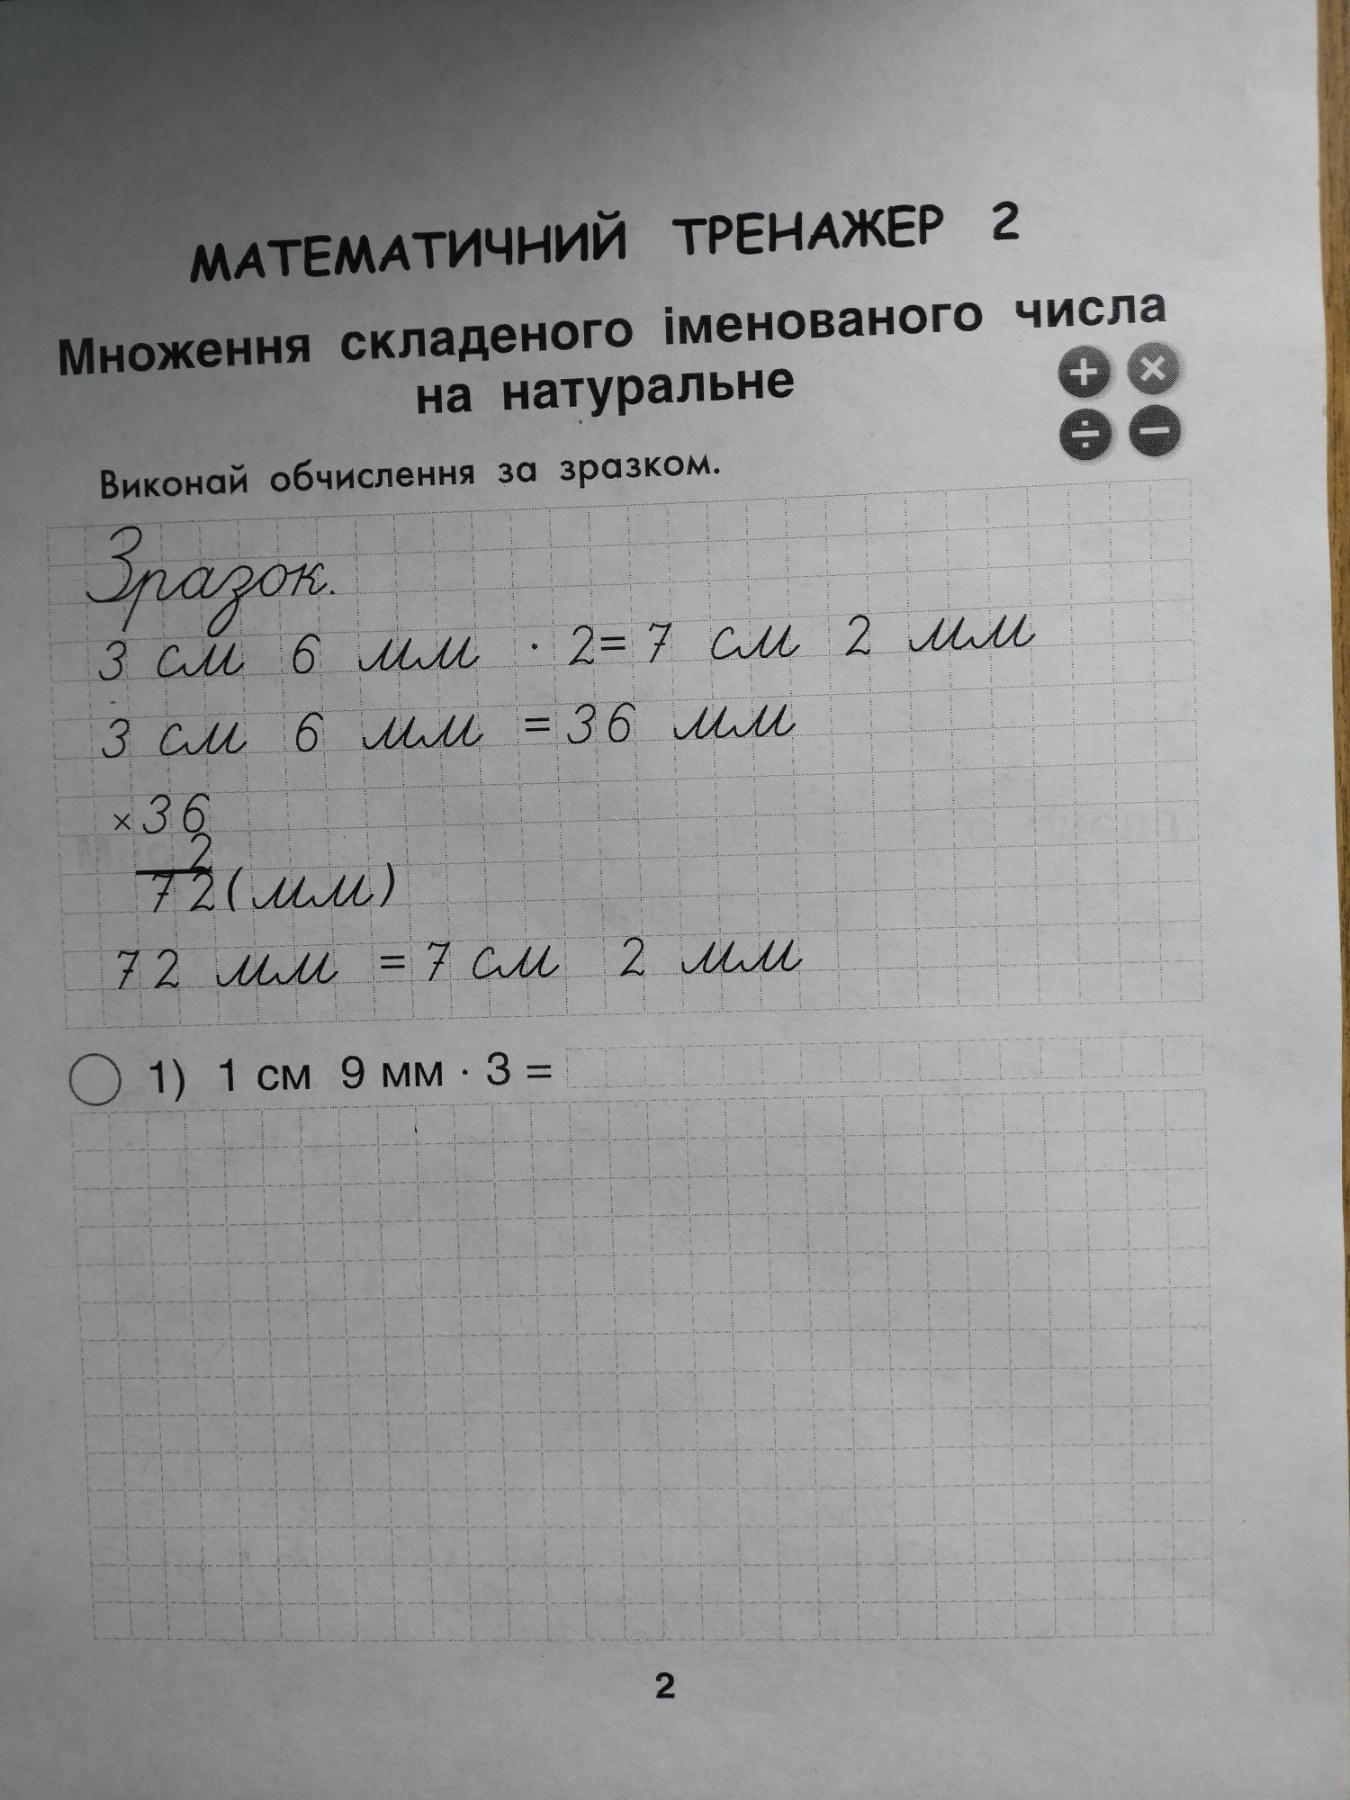 МАТЕМАТИЧНИЙ ТРЕНАЖЕР 2
Множення складеного іменованого числа
на натуральне
+ ×
÷ −
Виконай обчислення за зразком.
Зразок.
3 см 6 мм · 2 = 7 см 2 мм
3 см 6 мм = 36 мм
× 36
2
72 (мм)
72 мм = 7 см 2 мм
1) 1 см 9 мм · 3 =
2